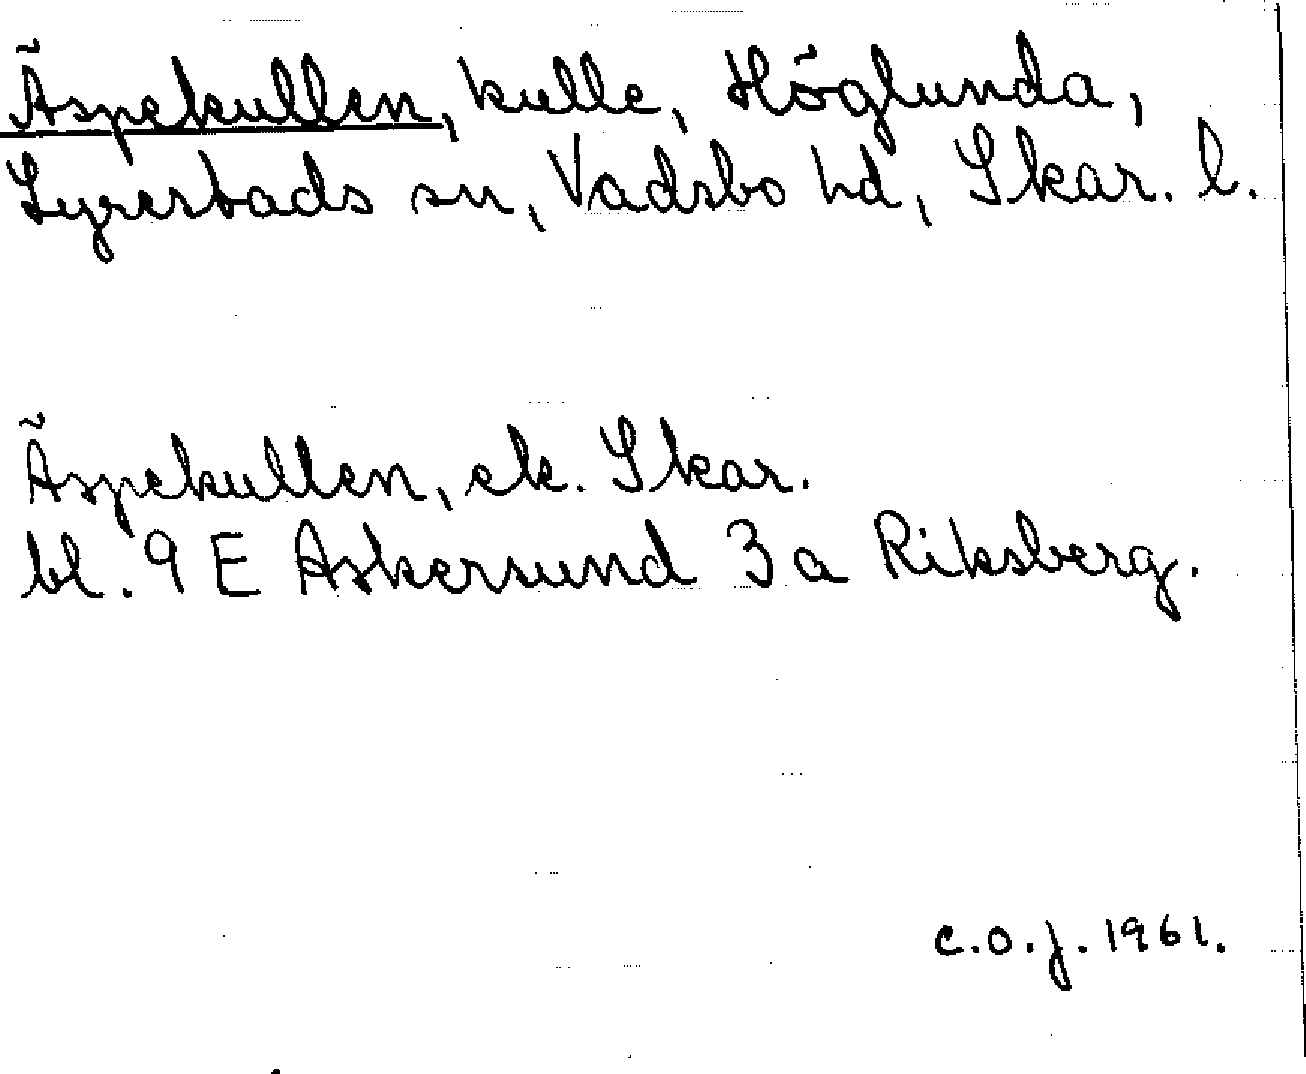 Äspekullen, kulle, Höglunda,
Lyrestads sn, Vadsbo hd, Skar. l.
Äspekullen, ek. Skar.
bl. 9 E Askersund 3 a Riksberg.
C.O.J. 1961.